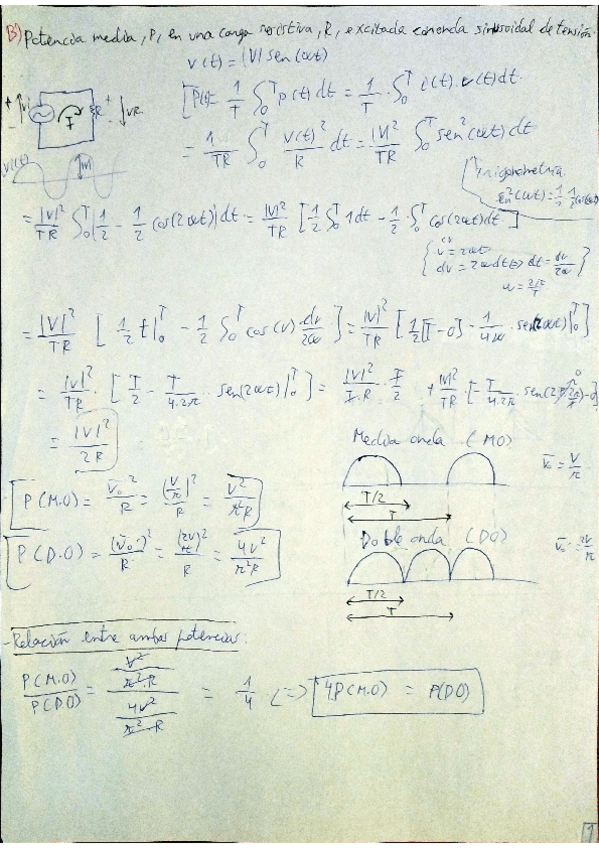 B) Potencia media, P, en una carga resistiva, R, excitada con onda sinusoidal de tensión.
v(t) = |V| sen(ωt)
P(t) = 1/T ∫₀ᵀ p(t) dt = 1/T · ∫₀ᵀ i(t) · v(t) dt
+ Vi - I R + - ↓VR
= 1/TR ∫₀ᵀ v(t)²/R dt = |V|²/TR ∫₀ᵀ sen²(ωt) dt
V(t) |V|
trigonometría
sen²(ωt) = 1/2 - 1/2 cos(2ωt)
= |V|²/TR ∫₀ᵀ [1/2 - 1/2 cos(2ωt)] dt = |V|²/TR [1/2 ∫₀ᵀ 1 dt - 1/2 · ∫₀ᵀ cos(2ωt) dt]
CV
v = 2ωt
dv = 2ω dt ⇔ dt = dv/2ω
ω = 2π/T
= |V|²/TR [1/2 t|₀ᵀ - 1/2 ∫₀ᵀ cos(v) · dv/2ω] = |V|²/TR [1/2 [T-0] - 1/4ω · sen(2ωt)|₀ᵀ]
= |V|²/TR · [T/2 - T/4·2π · sen(2ωt)|₀ᵀ] = |V|²/T·R · T/2 + |V|²/TR [-T/4·2π sen(2·2π/T·T) - 0]
0
= |V|²/2R
Media onda (MO)
V̄o = V/π
P(M.O) = V̄o²/R = (V/π)²/R = V²/π²R
T/2
T
P(D.O) = (V̄o)²/R = (2V/π)²/R = 4V²/π²R
Doble onda (DO)
V̄o = 2V/π
T/2
T
- Relación entre ambas potencias:
P(M.O)/P(D.O) = (V²/π²·R)/(4V²/π²·R) = 1/4 ⇔ 4P(M.O) = P(DO)
1